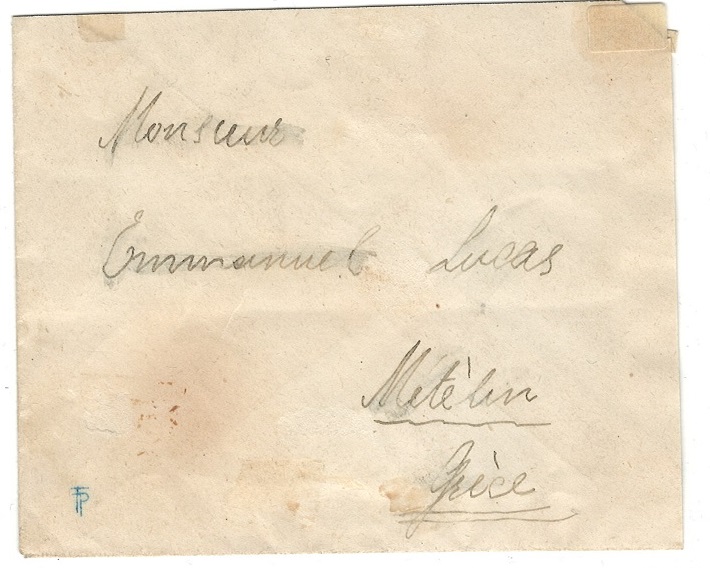 Monsieur
Emmanuel Lucas
Metélin
Grèce